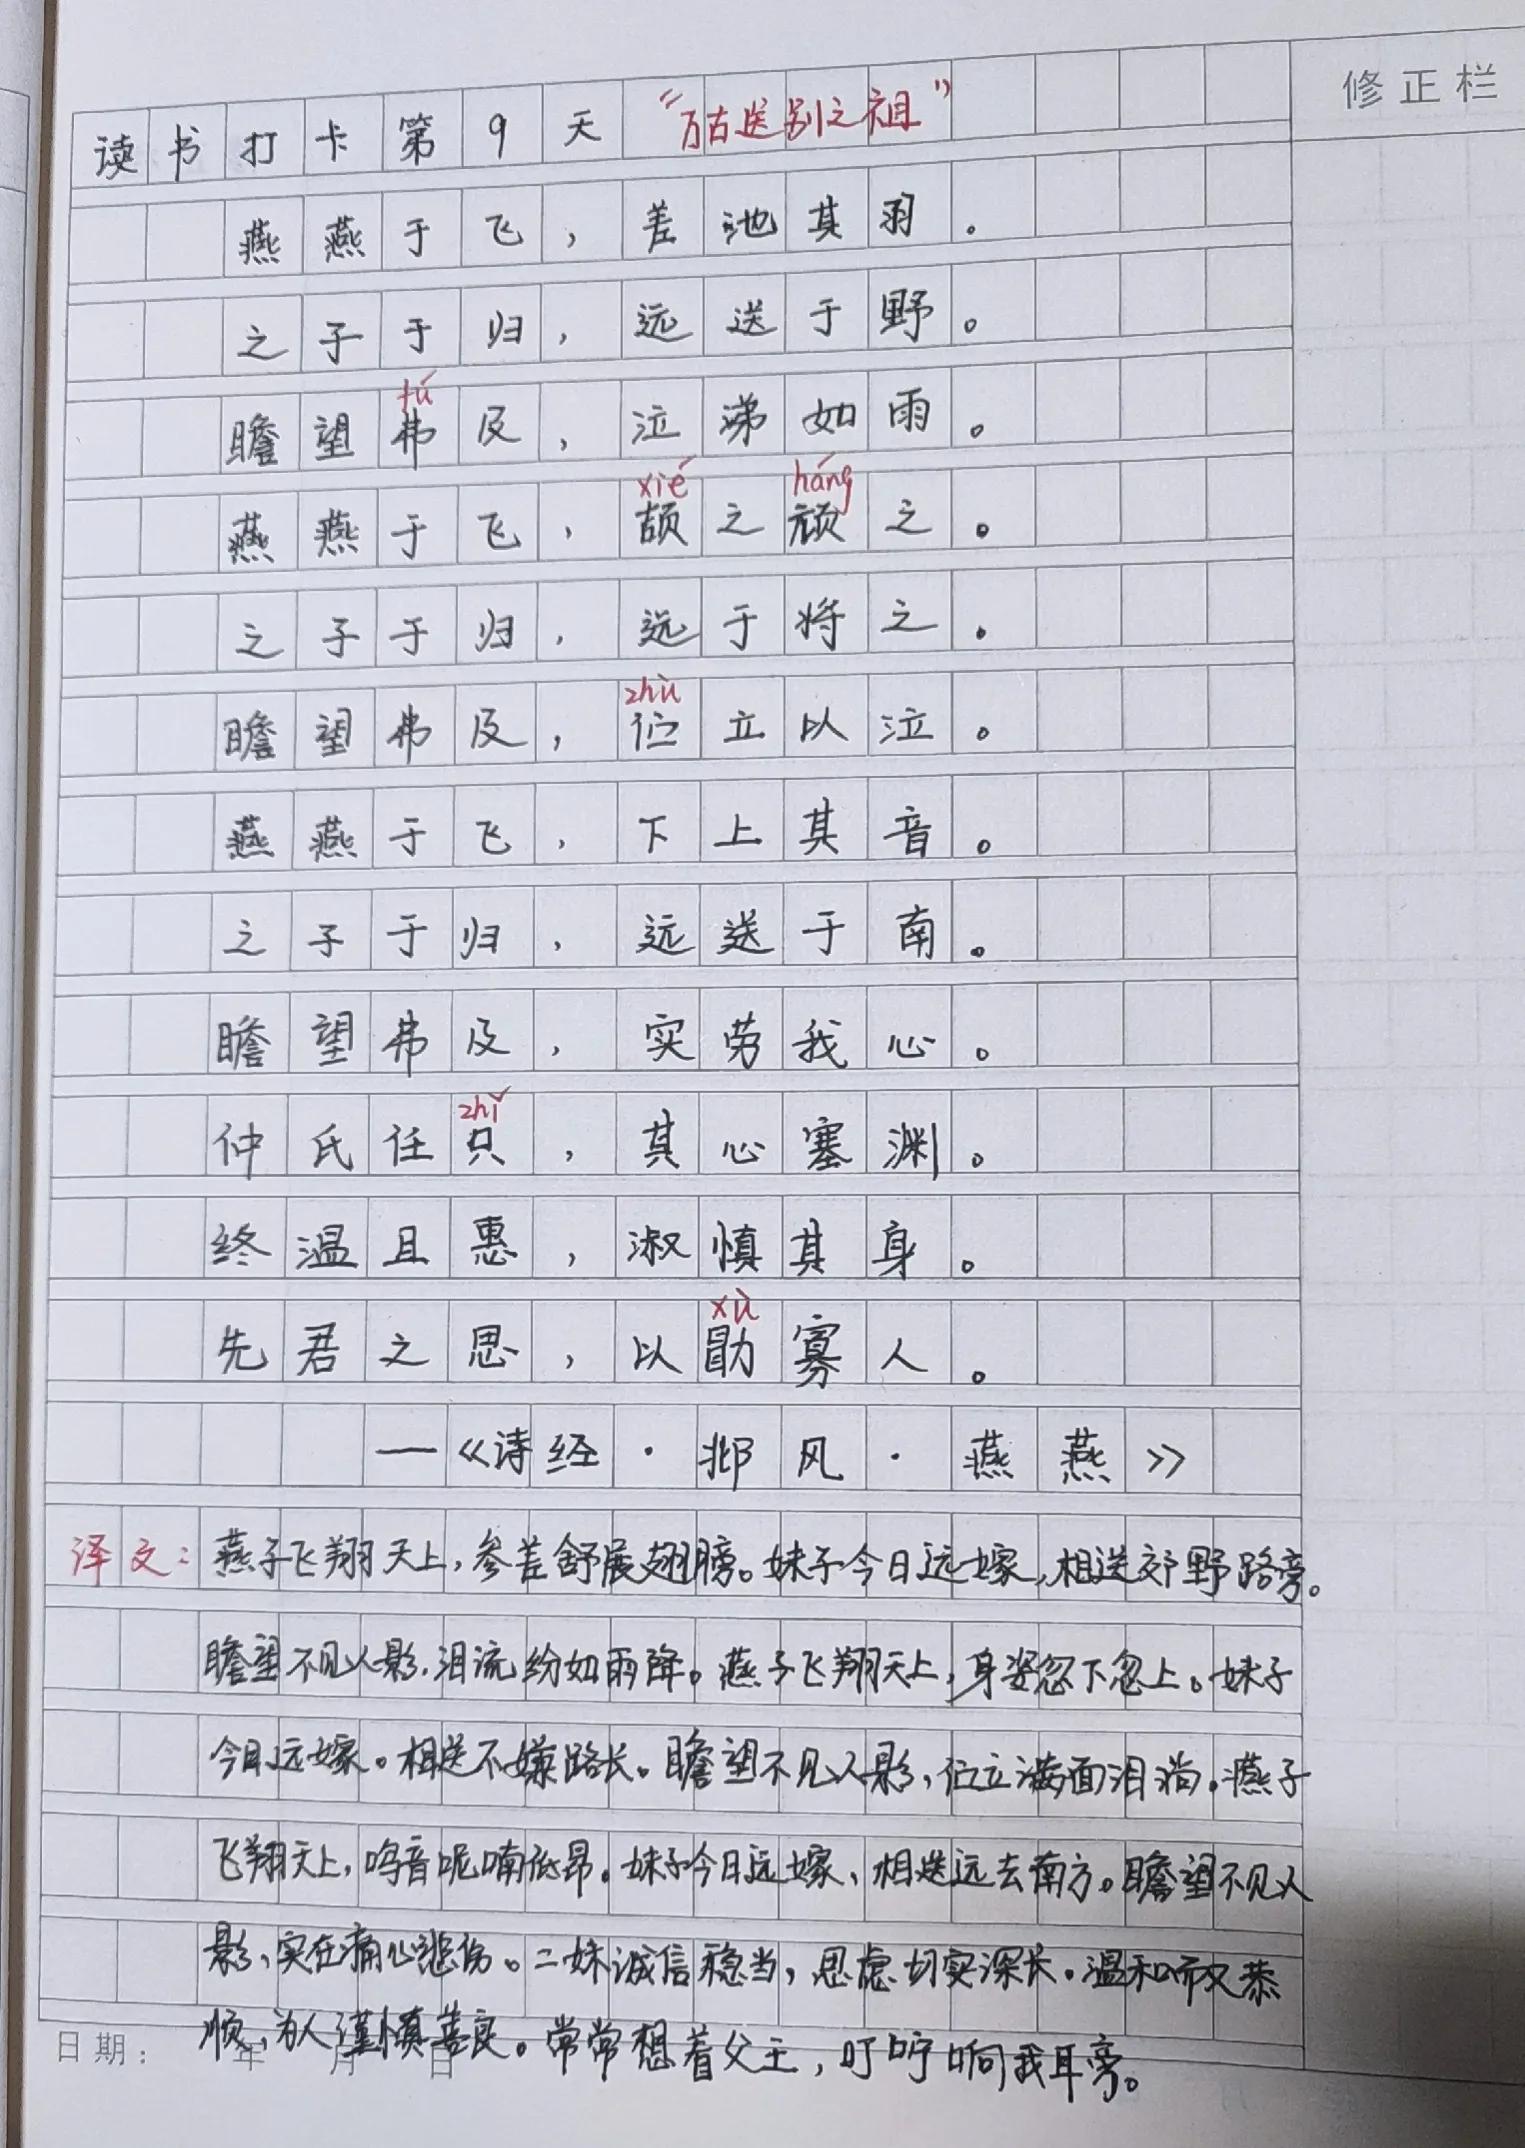 修正栏
读书打卡第9天 "万古送别之祖"
燕燕于飞，差池其羽。
之子于归，远送于野。
fú
瞻望弗及，泣涕如雨。
xié háng
燕燕于飞，颉之颃之。
之子于归，远于将之。
zhù
瞻望弗及，伫立以泣。
燕燕于飞，下上其音。
之子于归，远送于南。
瞻望弗及，实劳我心。
zhǐ
仲氏任只，其心塞渊。
终温且惠，淑慎其身。
xù
先君之思，以勖寡人。
—《诗经·邶风·燕燕》
译文：燕子飞翔天上，参差舒展翅膀。妹子今日远嫁，相送郊野路旁。
瞻望不见人影，泪流纷如雨降。燕子飞翔天上，身姿忽下忽上。妹子
今日远嫁。相送不嫌路长。瞻望不见人影，伫立满面泪淌。燕子
飞翔天上，鸣音呢喃低昂。妹子今日远嫁，相送远去南方。瞻望不见人
影，实在痛心悲伤。二妹诚信稳当，思虑切实深长。温和而又恭
顺，为人谨慎善良。常常想着父王，叮咛响我耳旁。
日期： 年 月 日